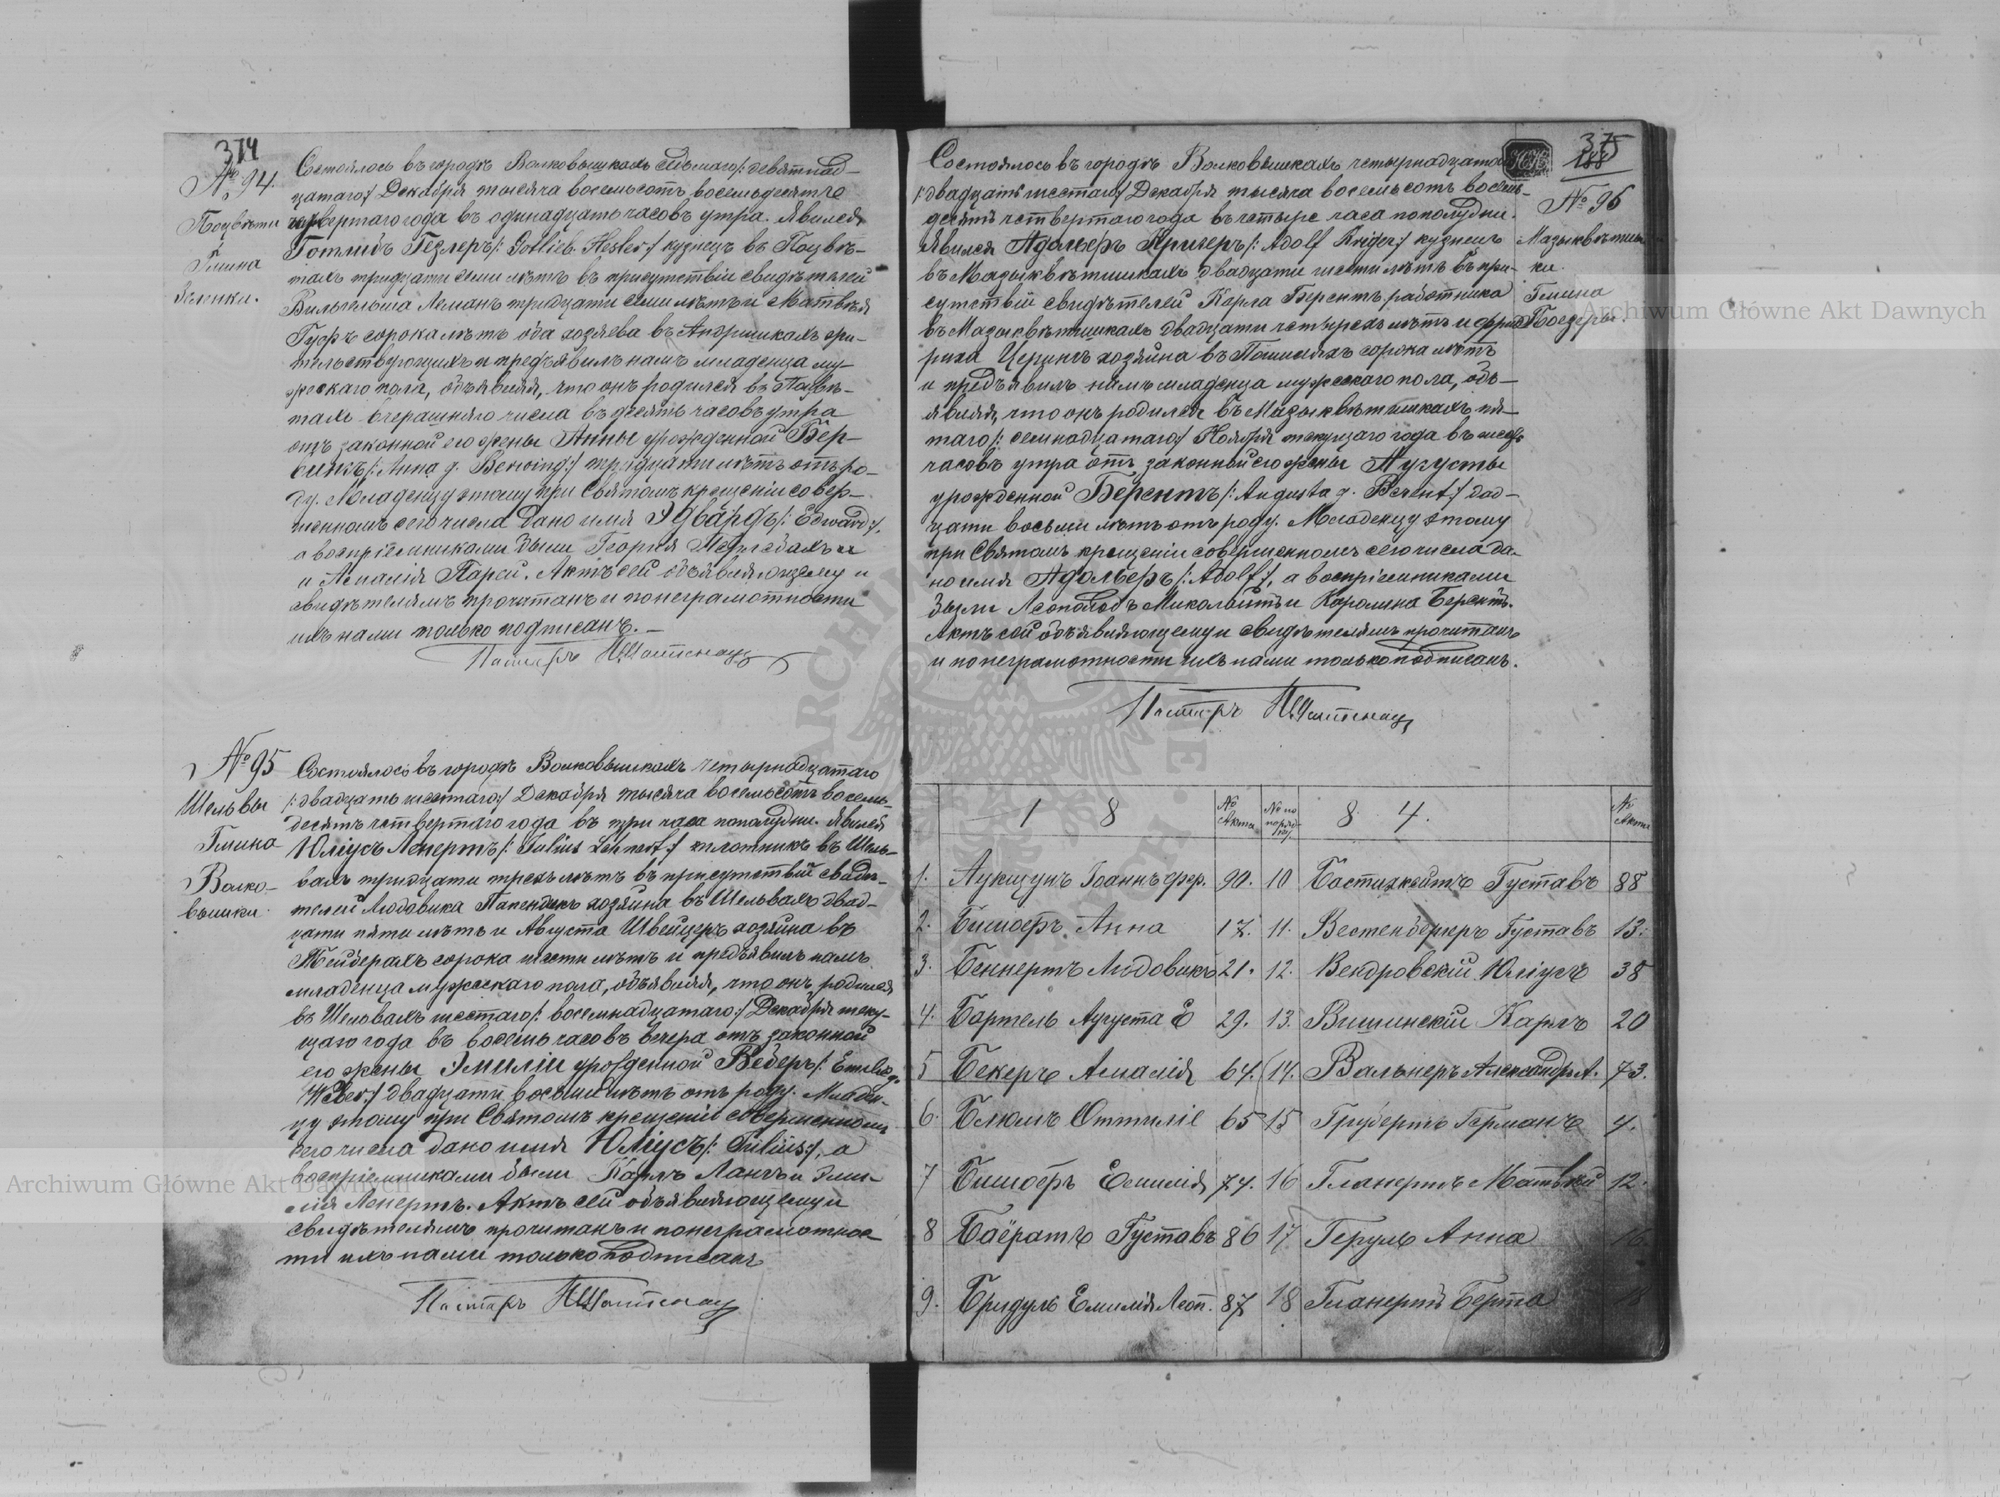 374
№ 94.
Поцвѣты
Гмина
Зеленки.
Состоялось въ городѣ Волковышкахъ седьмаго /: девятнад-
цатаго :/ Декабря тысяча восемьсотъ восемьдесятъ
четвертаго года въ одинадцать часовъ утра. Явился
Готлибъ Гезлеръ /: Gotlieb Hesler :/ кузнецъ въ Поцвѣ-
тахъ тридцати семи лѣтъ въ присутствіи свидѣтелей
Вильгельма Леманъ тридцати семи лѣтъ и Матвѣя
Гуфъ сорока лѣтъ оба хозяева въ Андришкахъ жи-
тельствующихъ и предъявилъ намъ младенца му-
жескаго пола, объявляя, что онъ родился въ Поцвѣ-
тахъ вчерашняго числа въ десять часовъ утра
отъ законной его жены Анны урожденной Бер-
/: Anna g. :/ тридцати лѣтъ отъ ро-
ду. Младенцу этому при Святомъ крещеніи совер-
шенномъ сего числа дано имя Эдвардъ /: Edward :/,
а воспріемниками были Георгъ
и Амалія Парей. Актъ сей объявляющему и
свидѣтелямъ прочитанъ и по неграмотности
ихъ нами только подписанъ. —
Пасторъ
№ 95
Шельвы
Гмина
Волко-
вышки.
Состоялось въ городѣ Волковышкахъ четырнадцатаго
/: двадцать шестаго :/ Декабря тысяча восемьсотъ восемь-
десятъ четвертаго года въ три часа пополудни. Явился
Юліусъ Ленертъ /: Julius Lehnert :/ плотникъ въ Шель-
вахъ тридцати трехъ лѣтъ въ присутствіи свидѣ-
телей Людовика Папендикъ хозяина въ Шельвахъ двад-
цати пяти лѣтъ и Августа Швейцеръ хозяина въ
сорока шести лѣтъ и предъявилъ намъ
младенца мужескаго пола, объявляя, что онъ родился
въ Шельвахъ шестаго /: восемнадцатаго :/ Декабря теку-
щаго года въ восемь часовъ вечера отъ законной
его жены Эмиліи урожденной Веберъ /: Emilie g.
Weber :/ двадцати восьми лѣтъ отъ роду. Младен-
цу этому при Святомъ крещеніи совершенномъ
сего числа дано имя Юліусъ /: Julius :/, а
воспріемниками были Карлъ Лангъ и Эми-
лія Ленертъ. Актъ сей объявляющему и
свидѣтелямъ прочитанъ и по неграмотнос-
ти ихъ нами только подписанъ
Пасторъ
375
188
№ 96
Мазыкветиш-
ки.
Гмина
Боезеры.
Состоялось въ городѣ Волковышкахъ четырнадцатаго
/: двадцать шестаго :/ Декабря тысяча восемьсотъ восемь-
десятъ четвертаго года въ четыре часа пополудни.
Явился Адольфъ Кригеръ /: Adolf Kriger :/ кузнецъ
въ Мазыкветишкахъ двадцати шести лѣтъ въ при-
сутствіи свидѣтелей Карла Берентъ работника
въ Мазыкветишкахъ двадцати четырехъ лѣтъ и Фрид-
риха хозяина въ сорока лѣтъ
и предъявилъ намъ младенца мужескаго пола, объ-
являя, что онъ родился въ Мазыкветишкахъ пя-
таго /: семнадцатаго :/ Ноября текущаго года въ шесть
часовъ утра отъ законной его жены Аугусты
урожденной Берентъ /: Augusta g. Berent :/ двад-
цати восьми лѣтъ отъ роду. Младенцу этому
при Святомъ крещеніи совершенномъ сего числа да-
но имя Адольфъ /: Adolf :/, а воспріемниками
были Леопольдъ Миколейтъ и Каролина Берентъ.
Актъ сей объявляющему и свидѣтелямъ прочитанъ
и по неграмотности ихъ нами только подписанъ.
Пасторъ
1 8 № Акта № по поряд-ку. 8 4. № Акта
1. Аукщунъ Іоаннъ Фер. 90. 10 Густавъ 88
2. Бишофъ Анна 17. 11. Вестенбергеръ Густавъ 13.
3. Беннертъ Людовикъ 21. 12. Вендровскій Юліусъ 38
4. Бартель Аугуста Е 29. 13. Вишинскій Карлъ 20
5 Бекеръ Амалія 64. 14. Вальнеръ Александръ А. 73.
6. Блюмъ Оттиліе 65 15 Грубертъ Германъ 4.
7 Бишофъ Емилія 74. 16 Гланертъ Матвѣй 12.
8 Баёратъ Густавъ 86 17 Геруль Анна 16
9. Бридуль Емилія Леоп. 87 18 Гланертъ Берта 18
Archiwum Główne Akt Dawnych
Archiwum Główne Akt Dawnych